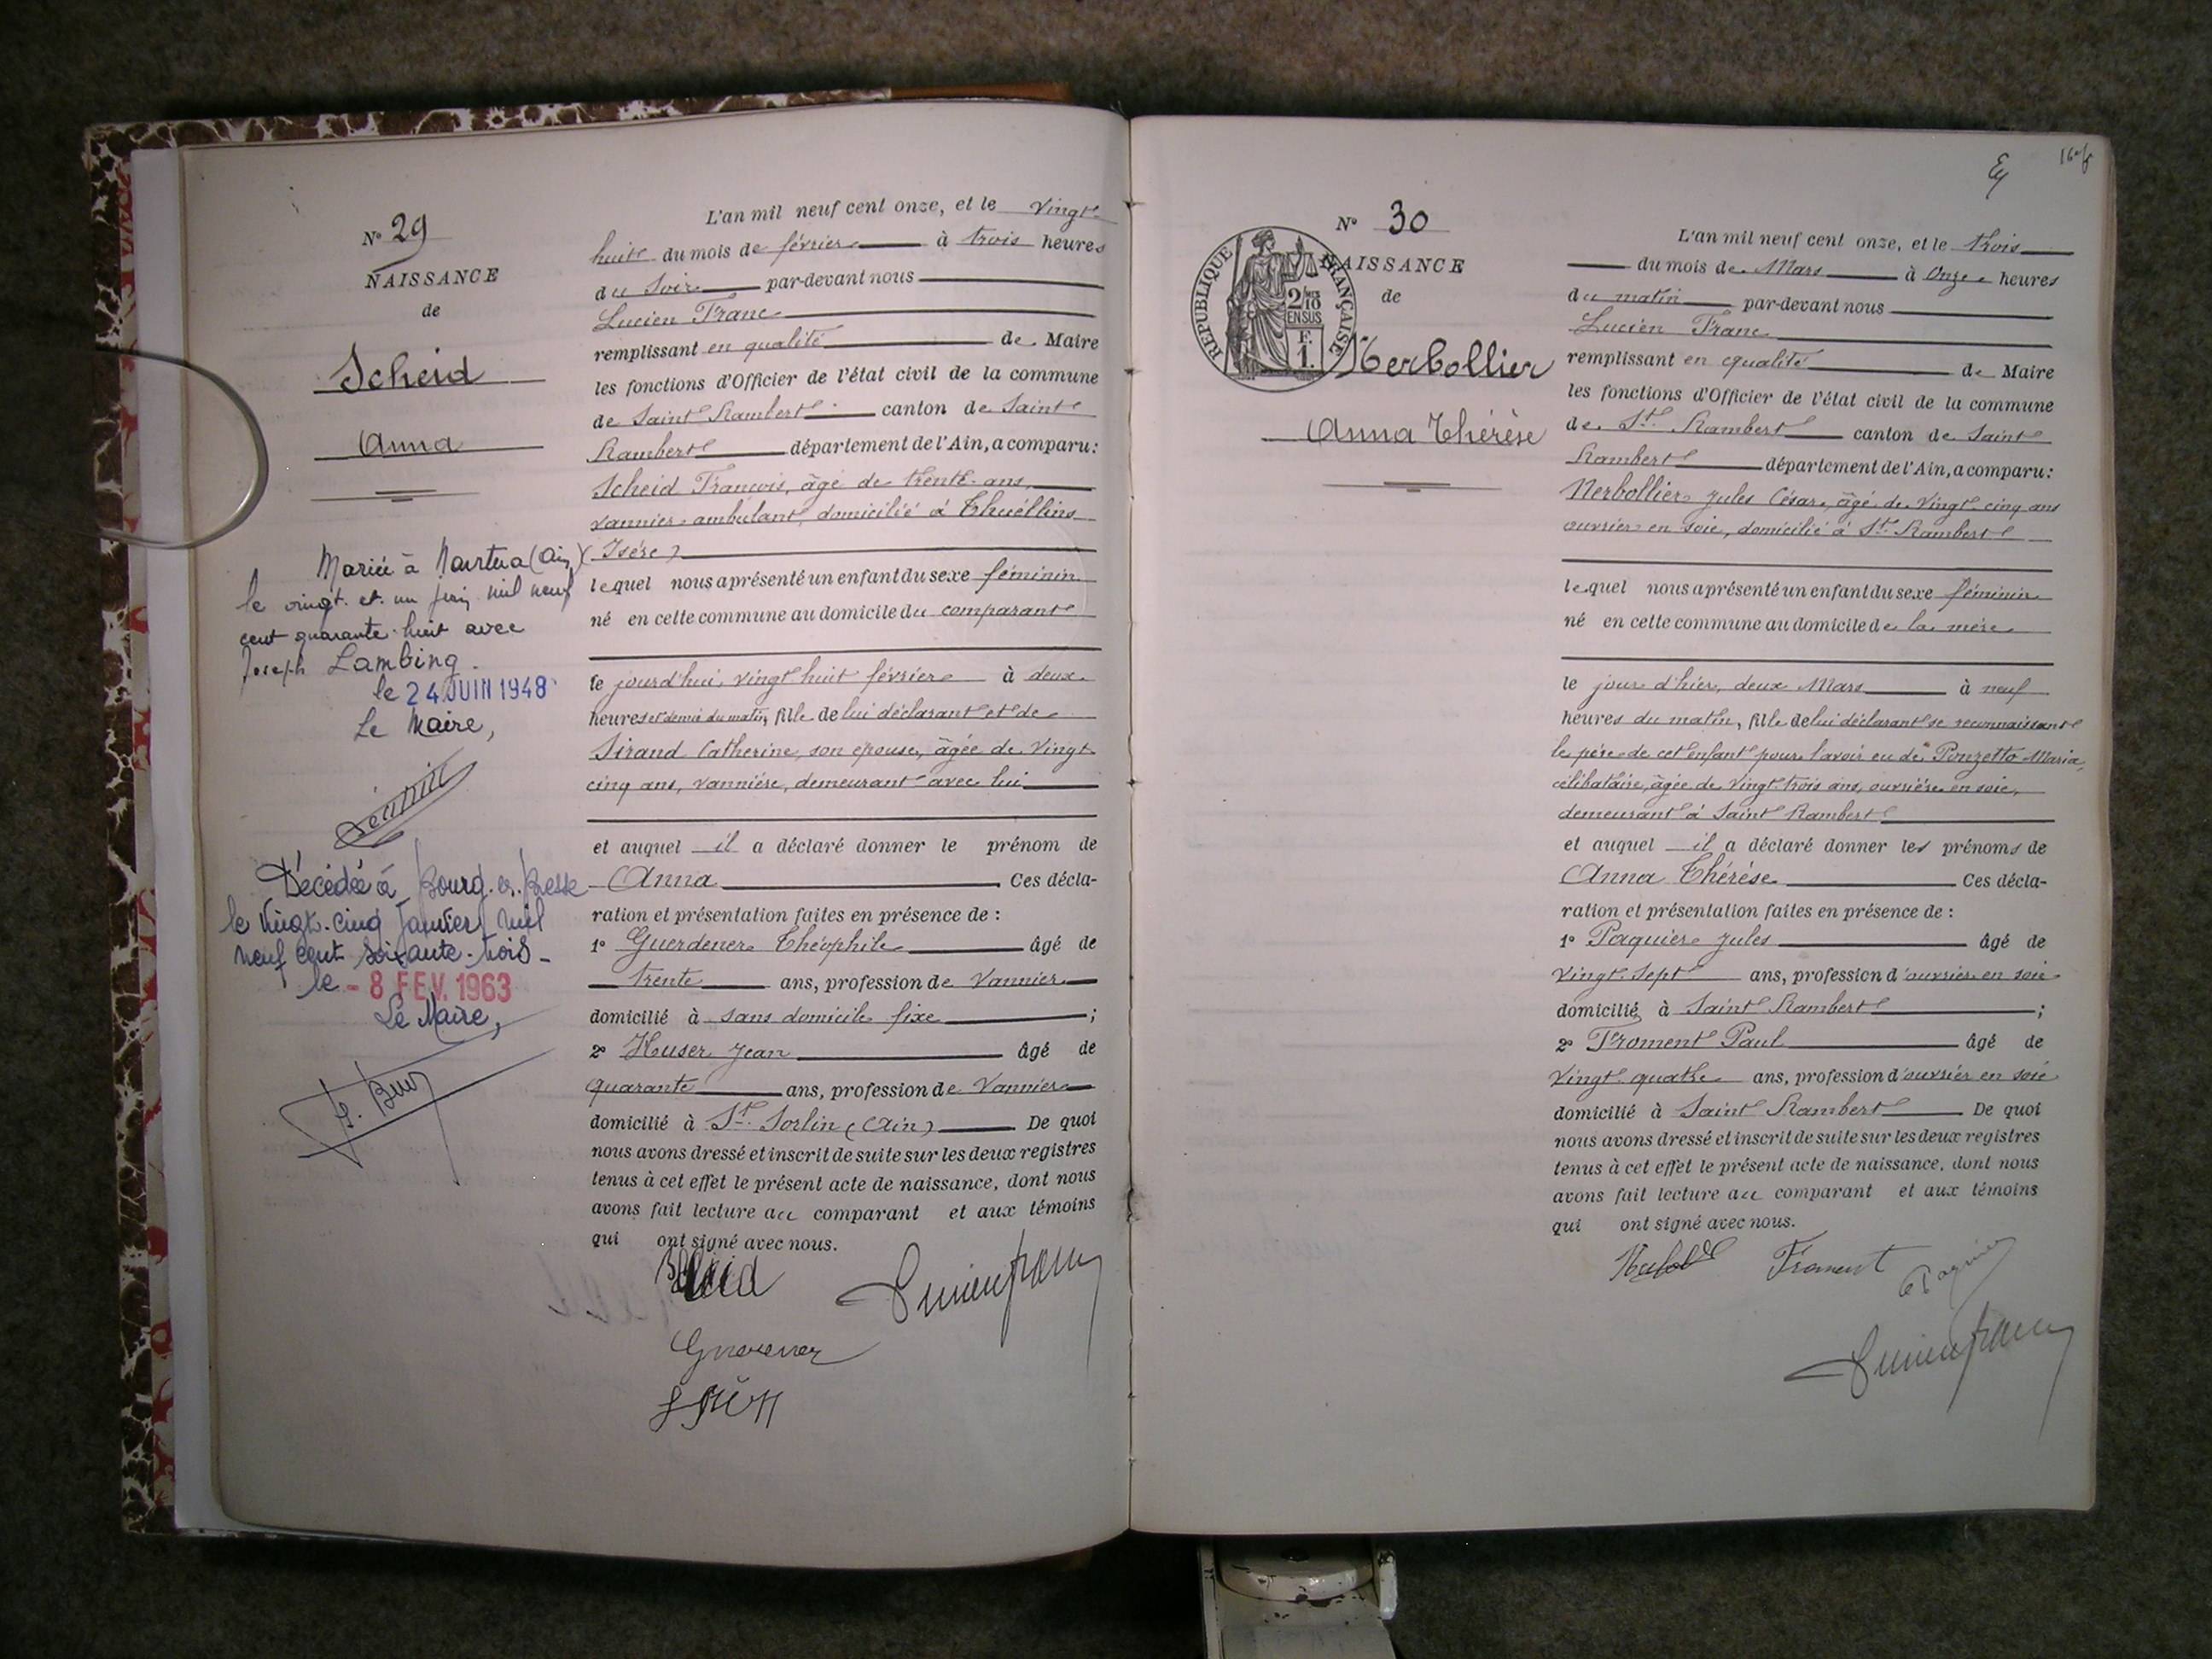 N° 29
NAISSANCE
de
Scheid
Anna
Mariée à Nantua (Ain)
le vingt et un juin mil neuf
cent quarante huit avec
Joseph Lambing.
le 24 JUIN 1948
Le Maire,
Décédée à Bourg-en-Bresse
le vingt-cinq Janvier mil
neuf cent soixante-trois -
le - 8 FEV. 1963
Le Maire,
L'an mil neuf cent onze, et le vingt
huit du mois de février à trois heures
du soir par-devant nous
Lucien Franc
remplissant en qualité de Maire
les fonctions d'Officier de l'état civil de la commune
de Saint Rambert canton de Saint
Rambert département de l'Ain, a comparu:
Scheid François, âgé de trente ans,
vannier ambulant, domicilié à Thuéllins
(Isére)
lequel nous a présenté un enfant du sexe féminin
né en cette commune au domicile du comparant
le jourd'hui, vingt huit février à deux
heures et demie du matin, fille de lui déclarant et de
Sirand Catherine, son épouse, âgée de vingt
cinq ans, vannière, demeurant avec lui
et auquel il a déclaré donner le prénom de
Anna Ces décla-
ration et présentation faites en présence de :
1° Guerdener Théophile âgé de
trente ans, profession de vannier
domicilié à sans domicile fixe ;
2° Huser Jean âgé de
quarante ans, profession de vannier
domicilié à St. Sorlin (Ain) De quoi
nous avons dressé et inscrit de suite sur les deux registres
tenus à cet effet le présent acte de naissance, dont nous
avons fait lecture au comparant et aux témoins
qui ont signé avec nous.
Lucien Franc
16
N° 30
NAISSANCE
de
REPUBLIQUE FRANÇAISE
2/10
EN SUS
F.
1.
Nerbollier
Anna Thérèse
L'an mil neuf cent onze, et le trois
du mois de Mars à onze heures
du matin par-devant nous
Lucien Franc
remplissant en qualité de Maire
les fonctions d'Officier de l'état civil de la commune
de St. Rambert canton de Saint
Rambert département de l'Ain, a comparu:
Nerbollier Jules César, âgé de vingt cinq ans
ouvrier en soie, domicilié à St. Rambert
lequel nous a présenté un enfant du sexe féminin
né en cette commune au domicile de la mère
le jour d'hier, deux Mars à neuf
heures du matin, fille de lui déclarant se reconnaissant
le père de cet enfant pour l'avoir eu de Ponzetto Maria,
célibataire, âgée de vingt-trois ans, ouvrière en soie,
demeurant à Saint Rambert
et auquel il a déclaré donner les prénoms de
Anna Thérèse Ces décla-
ration et présentation faites en présence de :
1° Paquier Jules âgé de
vingt-sept ans, profession d'ouvrier en soie
domicilié à Saint Rambert ;
2° Froment Paul âgé de
vingt quatre ans, profession d'ouvrier en soie
domicilié à Saint Rambert De quoi
nous avons dressé et inscrit de suite sur les deux registres
tenus à cet effet le présent acte de naissance, dont nous
avons fait lecture au comparant et aux témoins
qui ont signé avec nous.
Froment Paquier
Lucien Franc